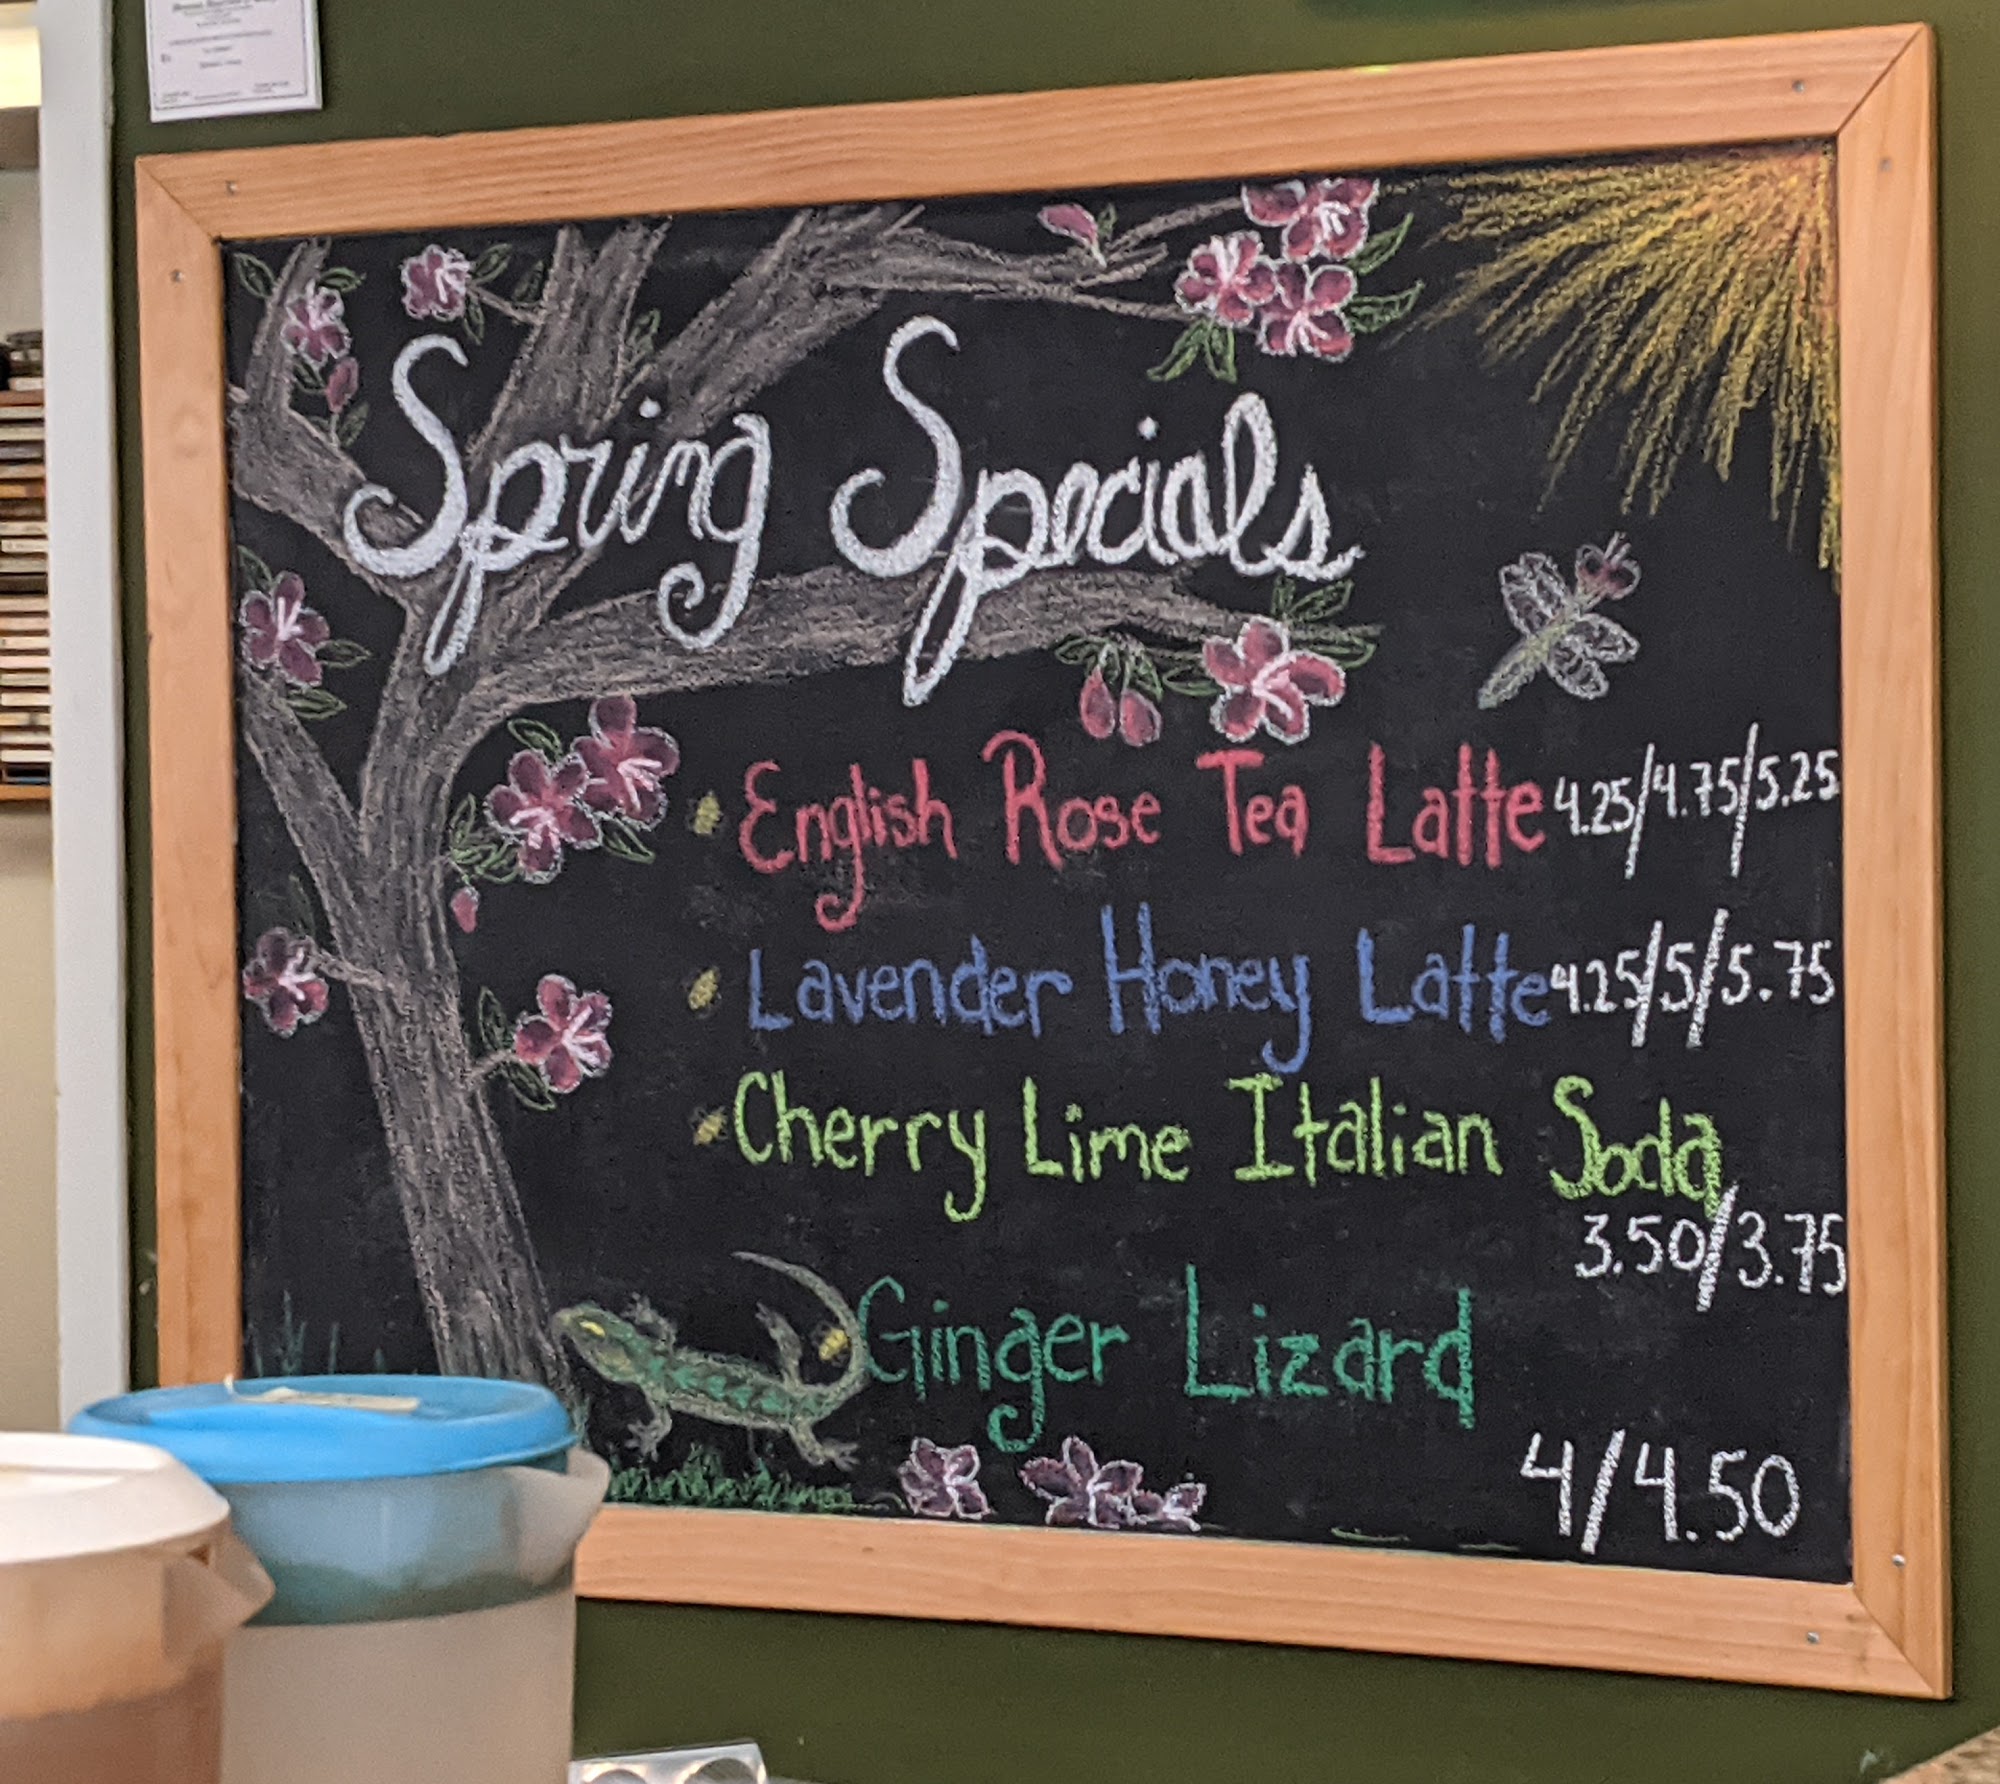 Spring Specials
English Rose Tea Latte 4.25/4.75/5.25
Lavender Honey Latte 4.25/5/5.75
Cherry Lime Italian Soda
3.50/3.75
Ginger Lizard
4/4.50